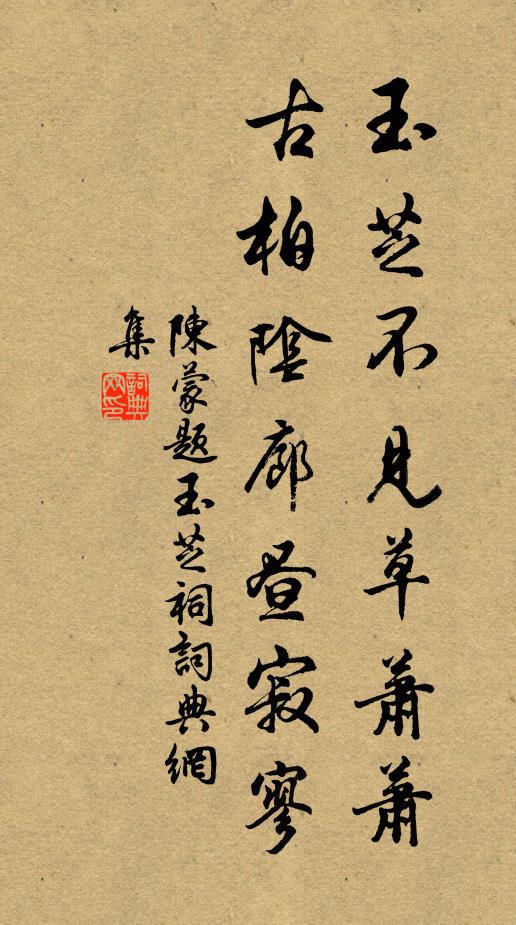 玉芝不見草蕭蕭
古柏陰廊晝寂寥
陳蒙題玉芝祠詞典網
集
詞典